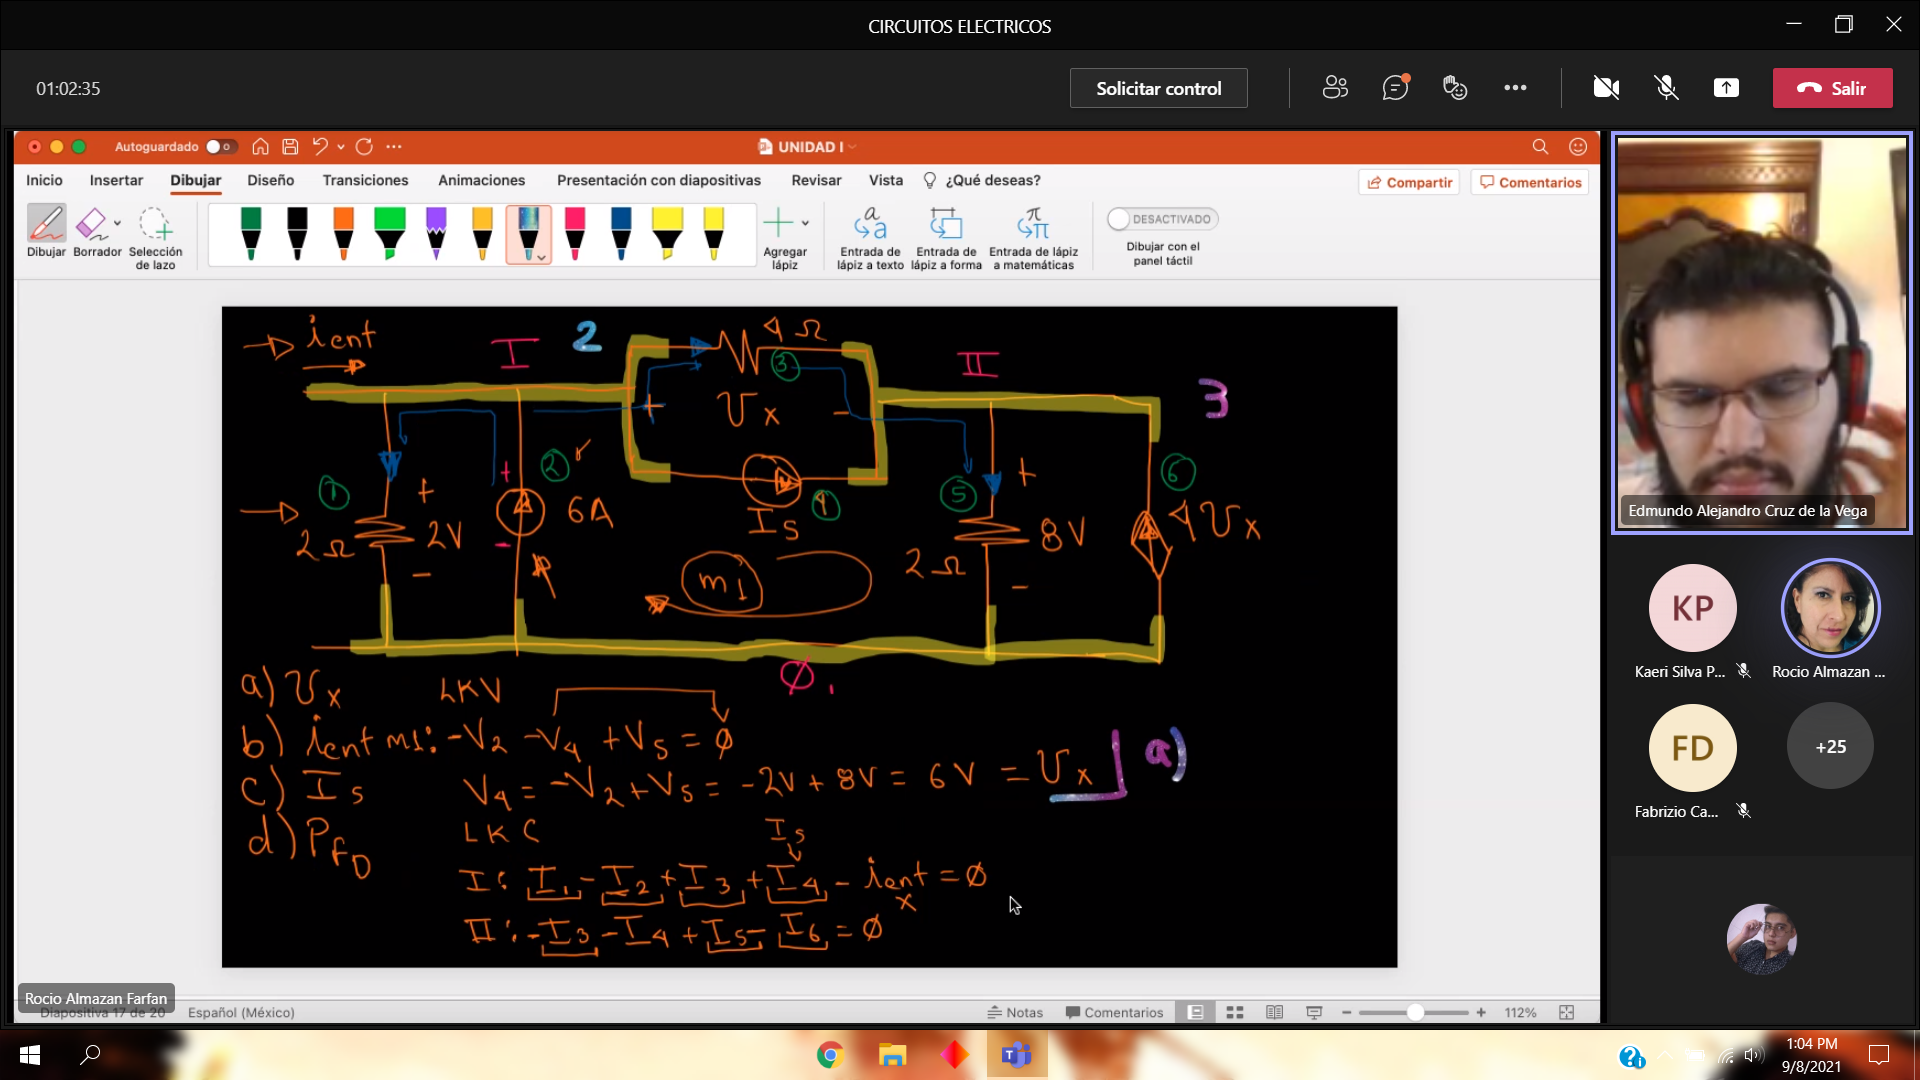 CIRCUITOS ELECTRICOS
01:02:35
Solicitar control
Salir
Autoguardado
UNIDAD I
Inicio Insertar Dibujar Diseño Transiciones Animaciones Presentación con diapositivas Revisar Vista ¿Qué deseas?
Compartir Comentarios
Dibujar Borrador Selección de lazo
Agregar lápiz
Entrada de lápiz a texto
Entrada de lápiz a forma
Entrada de lápiz a matemáticas
DESACTIVADO
Dibujar con el panel táctil
ient
I 2 4 Ω
3
II
3
+ Vx -
1 2 6A
+ 2V -
2Ω
Is 4
5 + 8V -
2Ω
6 4Vx
m1
Ø
a) Vx LKV
b) ient m1: -V2 -V4 +V5 = Ø
c) Is V4 = -V2 + V5 = -2V + 8V = 6V = Vx a)
d) PfD LKC
Is
I: I1 - I2 + I3 + I4 - ient = Ø
x
II: -I3 - I4 + I5 - I6 = Ø
Rocio Almazan Farfan
Diapositiva 17 de 20 Español (México)
Notas Comentarios 112%
Edmundo Alejandro Cruz de la Vega
KP
Kaeri Silva P... Rocio Almazan ...
FD +25
Fabrizio Ca...
1:04 PM
9/8/2021